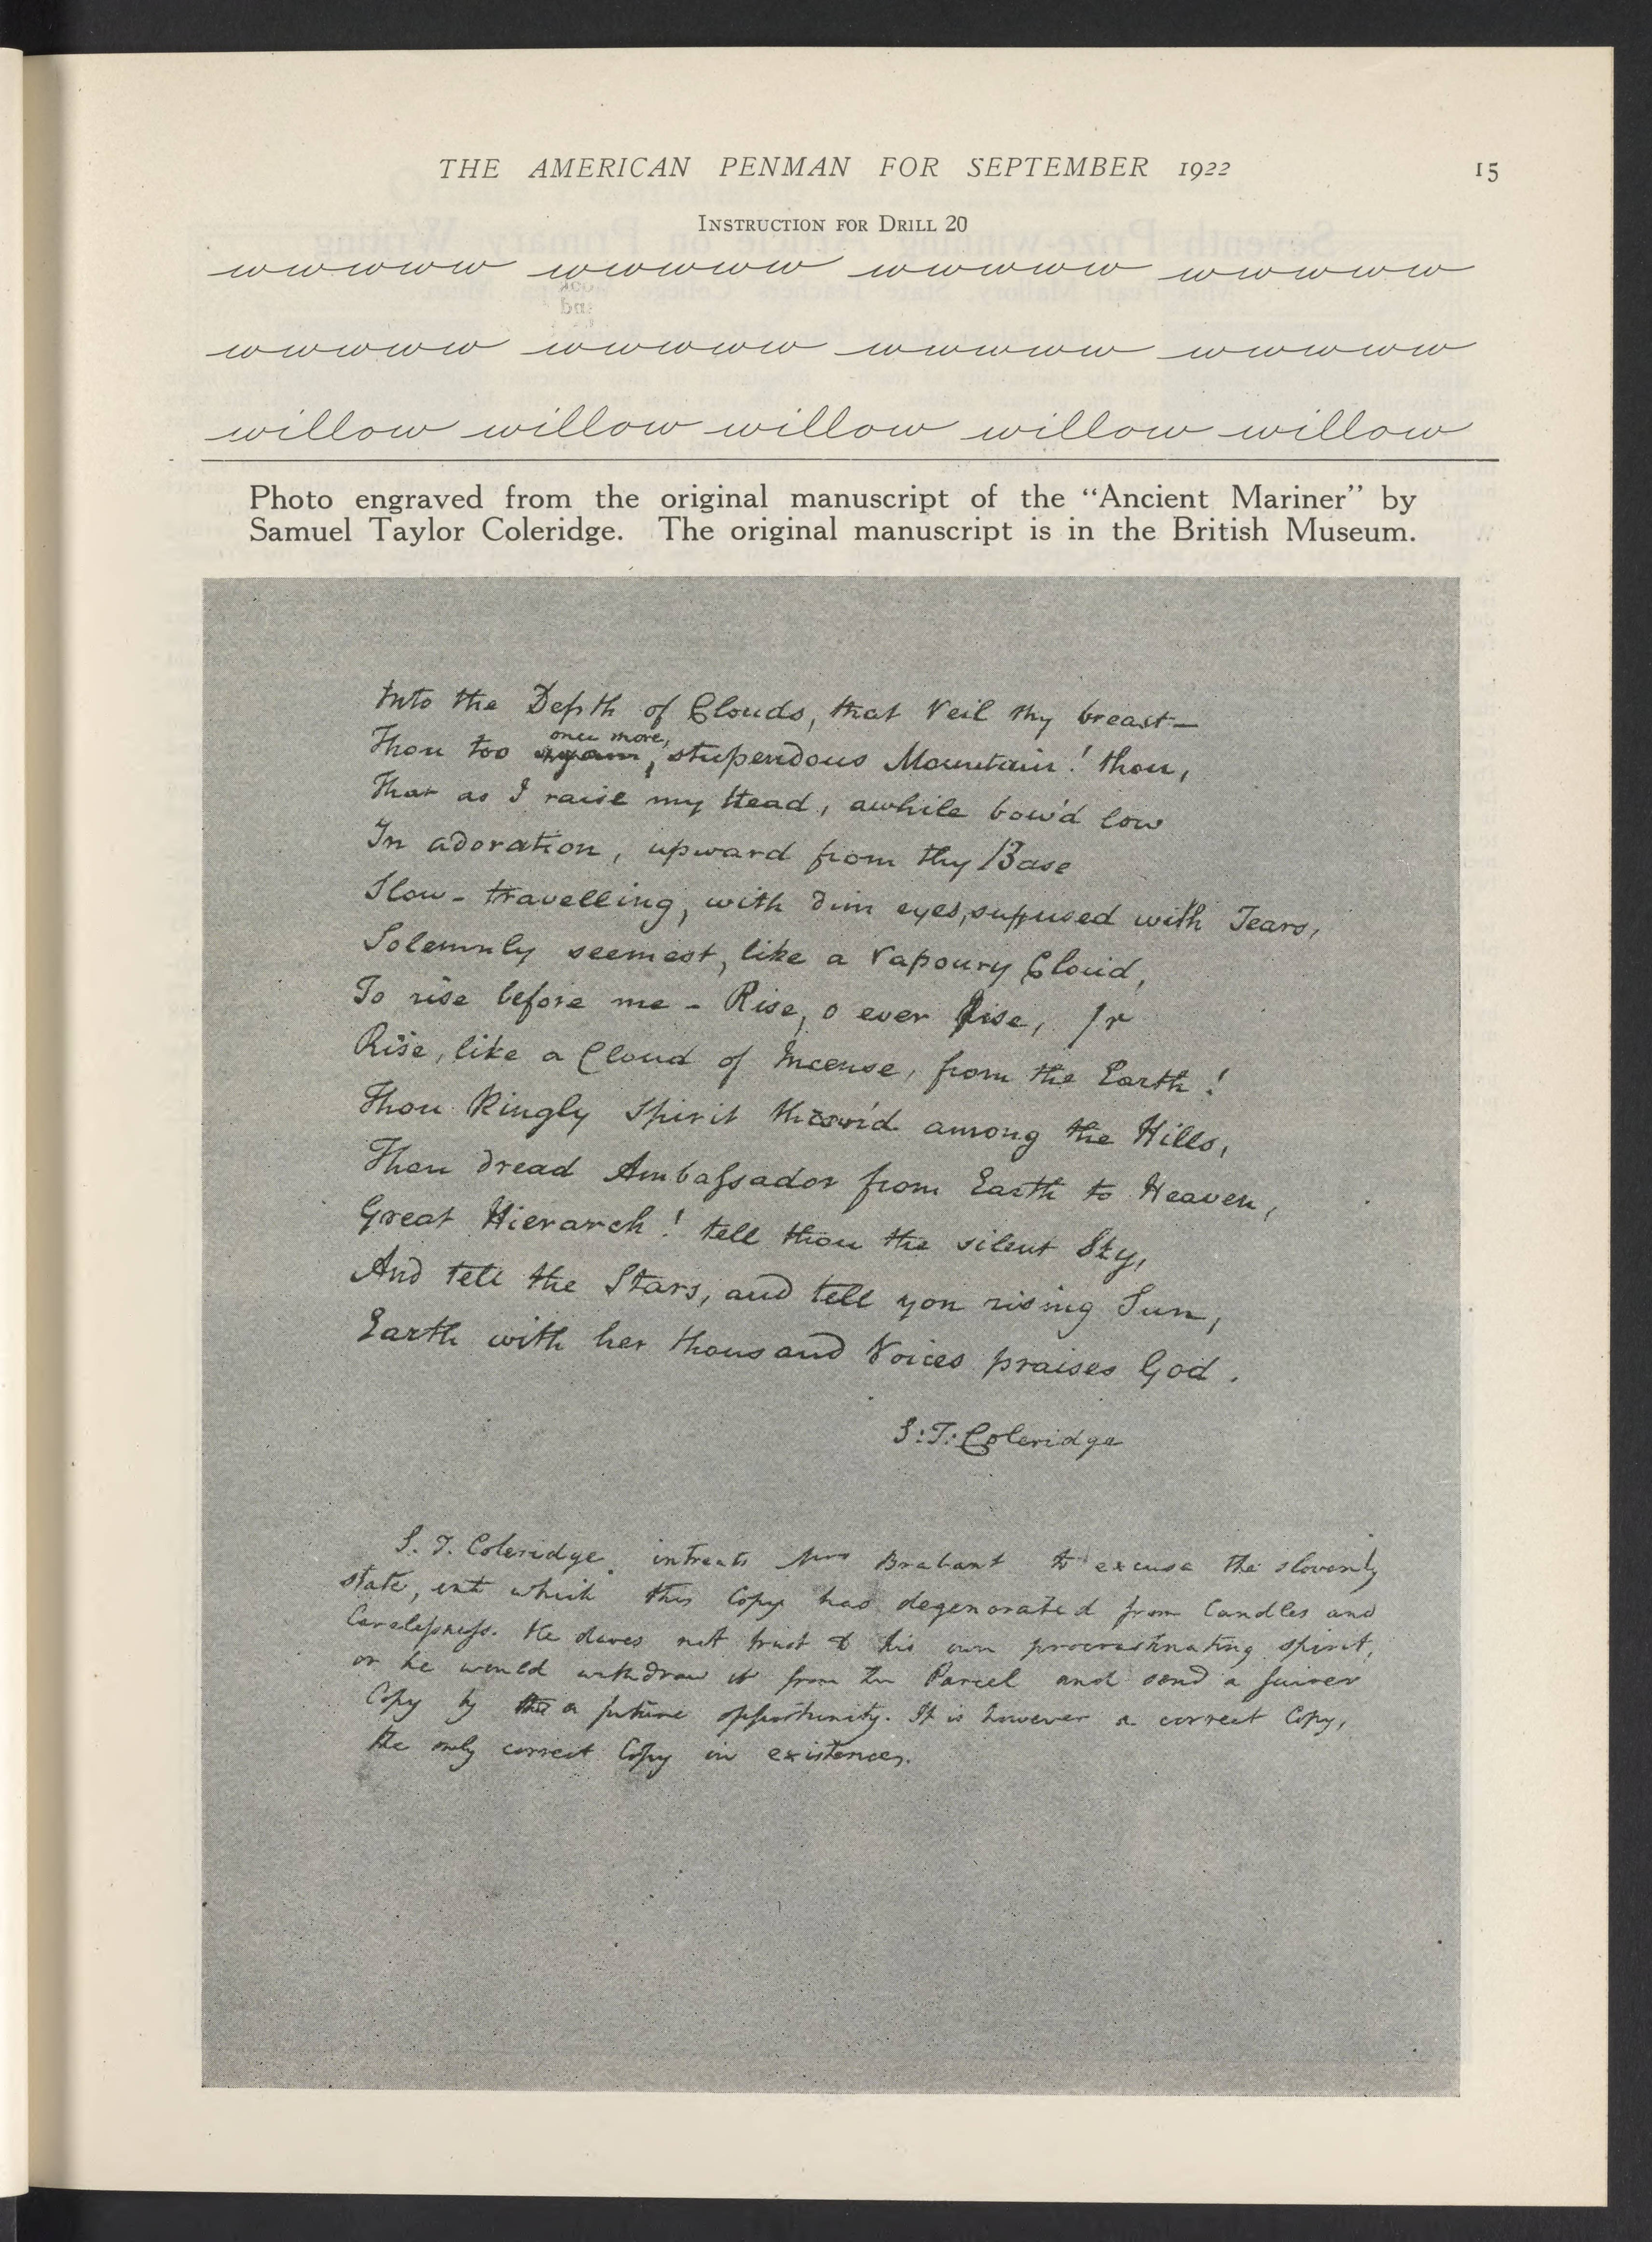 THE AMERICAN PENMAN FOR SEPTEMBER 1922 15
INSTRUCTION FOR DRILL 20
wwwwww wwwwww wwwwww wwwwww
wwwwww wwwwww wwwwww wwwwww
willow willow willow willow willow
Photo engraved from the original manuscript of the “Ancient Mariner” by
Samuel Taylor Coleridge. The original manuscript is in the British Museum.
Into the Depth of Clouds, that Veil thy breast—
once more,
Thou too again, stupendous Mountain! thou,
That as I raise my Head, awhile bow'd low
In adoration, upward from thy Base
Slow-travelling, with dim eyes, suffused with Tears,
Solemnly seemest, like a Vapoury Cloud,
To rise before me - Rise, o ever Rise,
Rise, like a Cloud of Incense, from the Earth!
Thou Kingly Spirit thron'd among the Hills,
Thou dread Ambassador from Earth to Heaven,
Great Hierarch! tell thou the silent Sky,
And tell the Stars, and tell yon rising Sun,
Earth with her thousand Voices praises God.
S:T: Coleridge
S. T. Coleridge intreats Mrs Brabant to excuse the slovenly
state, into which this Copy has degenerated from Candles and
Carelessness. He dares not trust to his own procrastinating spirit,
or he would withdraw it from the Parcel and send a fairer
Copy by the a future opportunity. It is however a correct Copy,
the only correct Copy in existence.